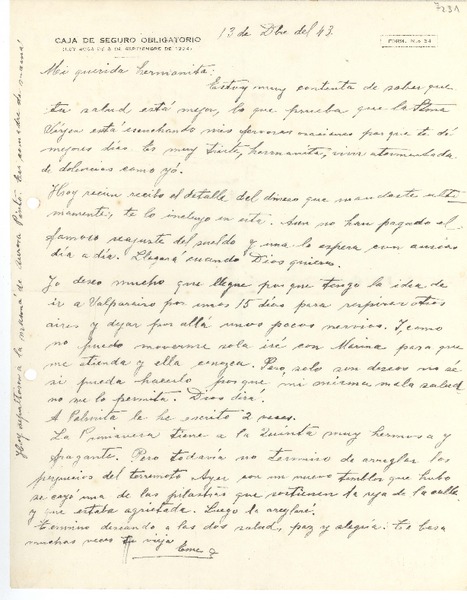 7231
CAJA DE SEGURO OBLIGATORIO
(LEY 4054 DE 8 DE SEPTIEMBRE DE 1924)
FORM. N.o 34
13 de Dbre del 43.
Mi querida hermanita:
Estoy muy contenta de saber que
tu salud está mejor, lo que prueba que la Stma
Virgen está escuchando mis fervorosas oraciones porque te dé
mejores días. Es muy triste, hermanita, vivir atormentada
de dolencias como yó.
Hoy recien recibo el detalle del dinero que mandaste ulti-
mamente; te lo incluyo en esta. Aun no han pagado el
famoso reajuste del sueldo y una lo espera con ansias
día a día. Llegará cuando Dios quiera.
Yo deseo mucho que llegue porque tengo la idea de
ir a Valparaíso por unos 15 días para respirar otros
aires y dejar por allá unos pocos nervios. Y, como
no puedo moverme sola iré con Merina para que
me atienda y ella conozca. Pero, solo son deseos no sé
si pueda hacerlo porque mi misma mala salud
no me lo permita. Dios dirá.
A Palmita la he escrito 2 veces.
La Primavera tiene a la Quinta muy hermosa y
fragante. Pero todavía no termino de arreglar los
perjuicios del terremoto. Ayer con un nuevo temblor que hubo
se cayó una de las pilastras que sostienen la reja de la calle
y que estaba agrietada. Luego la arreglaré.
Termino deseando a las dos salud, paz y alegría. Te besa
muchas veces tu vieja
Eme
Hoy sepultaron a la mamá de Aurora Pinto